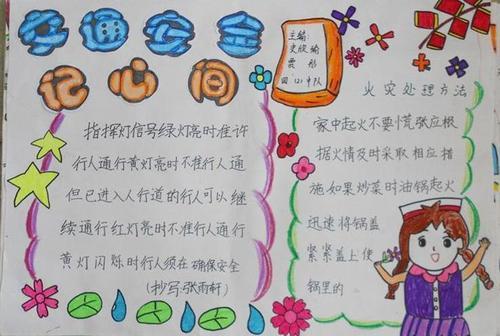 交通安全
记心间
主编:
史欣瑜
四(2)中队
指挥灯信号绿灯亮时准许
行人通行黄灯亮时不准行人通
但已进入人行道的行人可以继
续通行红灯亮时不准行人通行
黄灯闪烁时行人须在确保安全
(抄写:张雨轩)
火灾处理方法
家中起火不要慌张应根
据火情及时采取相应措
施如果炒菜时油锅起火
迅速将锅盖
紧紧盖上使
锅里的